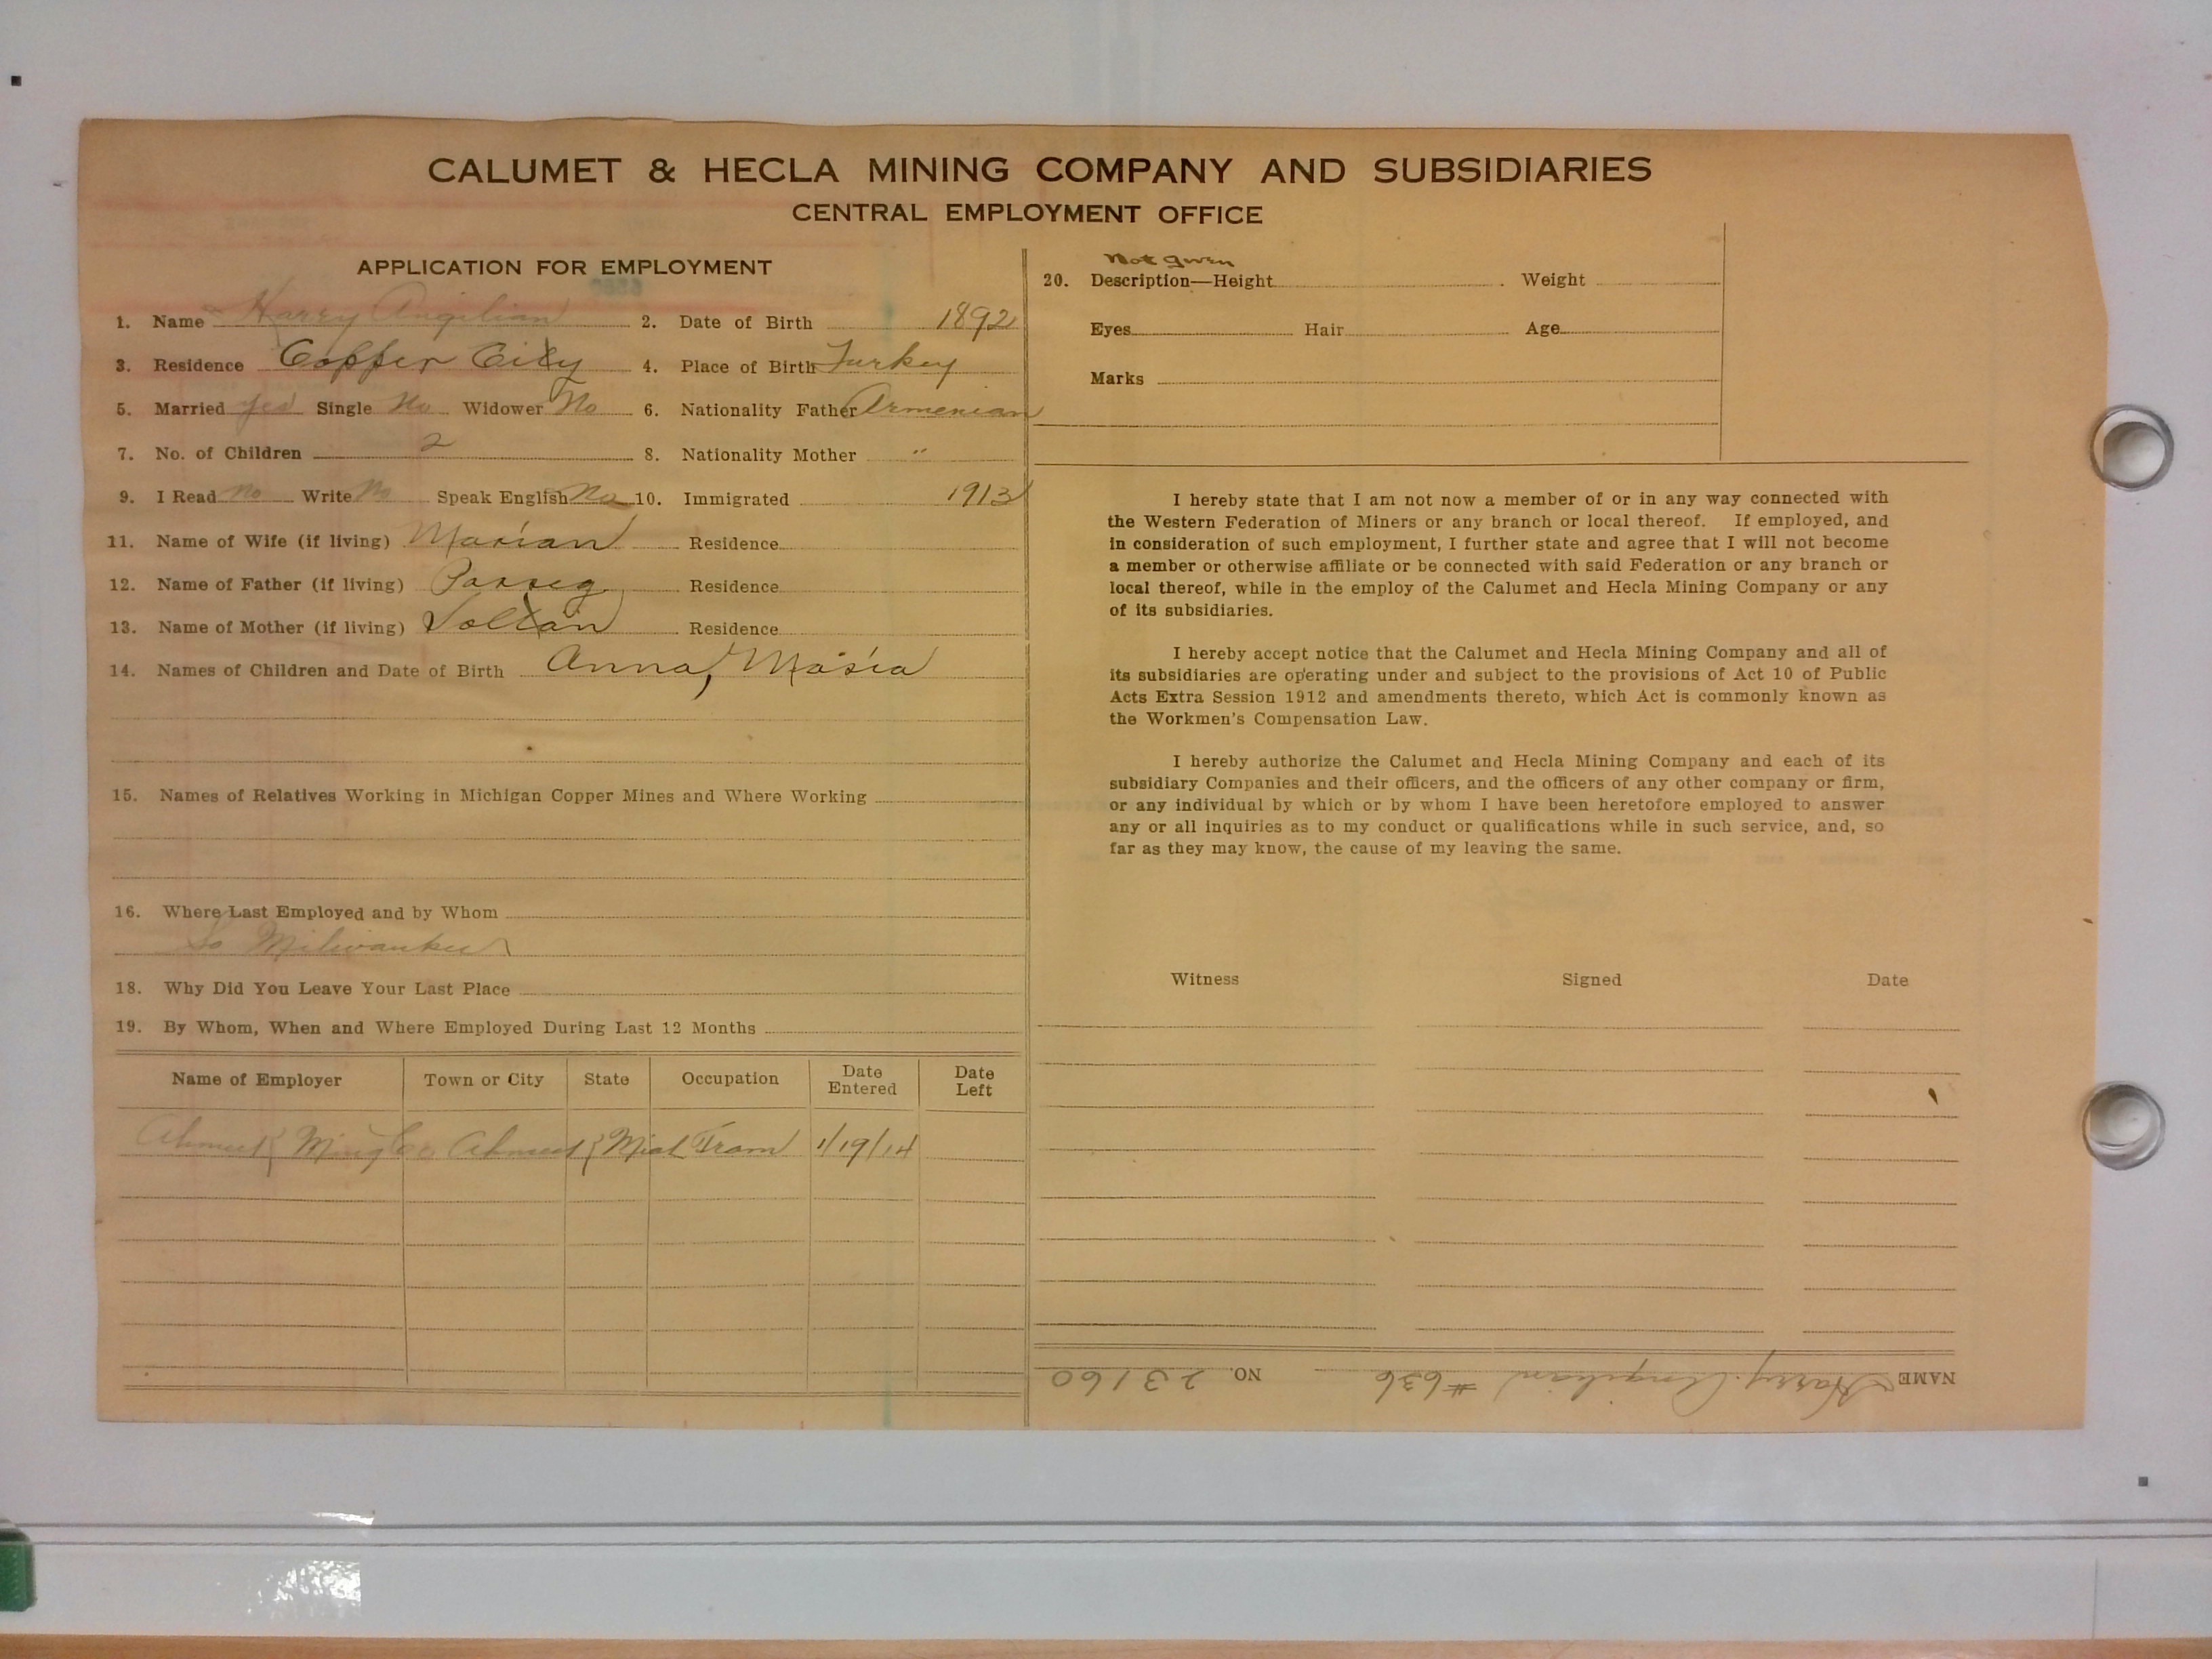 CALUMET & HECLA MINING COMPANY AND SUBSIDIARIES
CENTRAL EMPLOYMENT OFFICE
APPLICATION FOR EMPLOYMENT
1. Name Harry Angilian 2. Date of Birth 1892
3. Residence Copper City 4. Place of Birth Turkey
5. Married yes Single No Widower No 6. Nationality Father Armenian
7. No. of Children 2 8. Nationality Mother "
9. I Read No Write No Speak English No 10. Immigrated 1913
11. Name of Wife (if living) Marian Residence
12. Name of Father (if living) Residence
13. Name of Mother (if living) Soltan Residence
14. Names of Children and Date of Birth Anna, Maria
15. Names of Relatives Working in Michigan Copper Mines and Where Working
16. Where Last Employed and by Whom
So Milwaukee
18. Why Did You Leave Your Last Place
19. By Whom, When and Where Employed During Last 12 Months
Name of Employer Town or City State Occupation Date Entered Date Left
Ahmeek Ming Co Ahmeek Mich Tram 1/19/14
Not given
20. Description—Height Weight
Eyes Hair Age
Marks
I hereby state that I am not now a member of or in any way connected with
the Western Federation of Miners or any branch or local thereof. If employed, and
in consideration of such employment, I further state and agree that I will not become
a member or otherwise affiliate or be connected with said Federation or any branch or
local thereof, while in the employ of the Calumet and Hecla Mining Company or any
of its subsidiaries.
I hereby accept notice that the Calumet and Hecla Mining Company and all of
its subsidiaries are operating under and subject to the provisions of Act 10 of Public
Acts Extra Session 1912 and amendments thereto, which Act is commonly known as
the Workmen's Compensation Law.
I hereby authorize the Calumet and Hecla Mining Company and each of its
subsidiary Companies and their officers, and the officers of any other company or firm,
or any individual by which or by whom I have been heretofore employed to answer
any or all inquiries as to my conduct or qualifications while in such service, and, so
far as they may know, the cause of my leaving the same.
Witness Signed Date
NAME Harry Angilian #636 NO. 23160